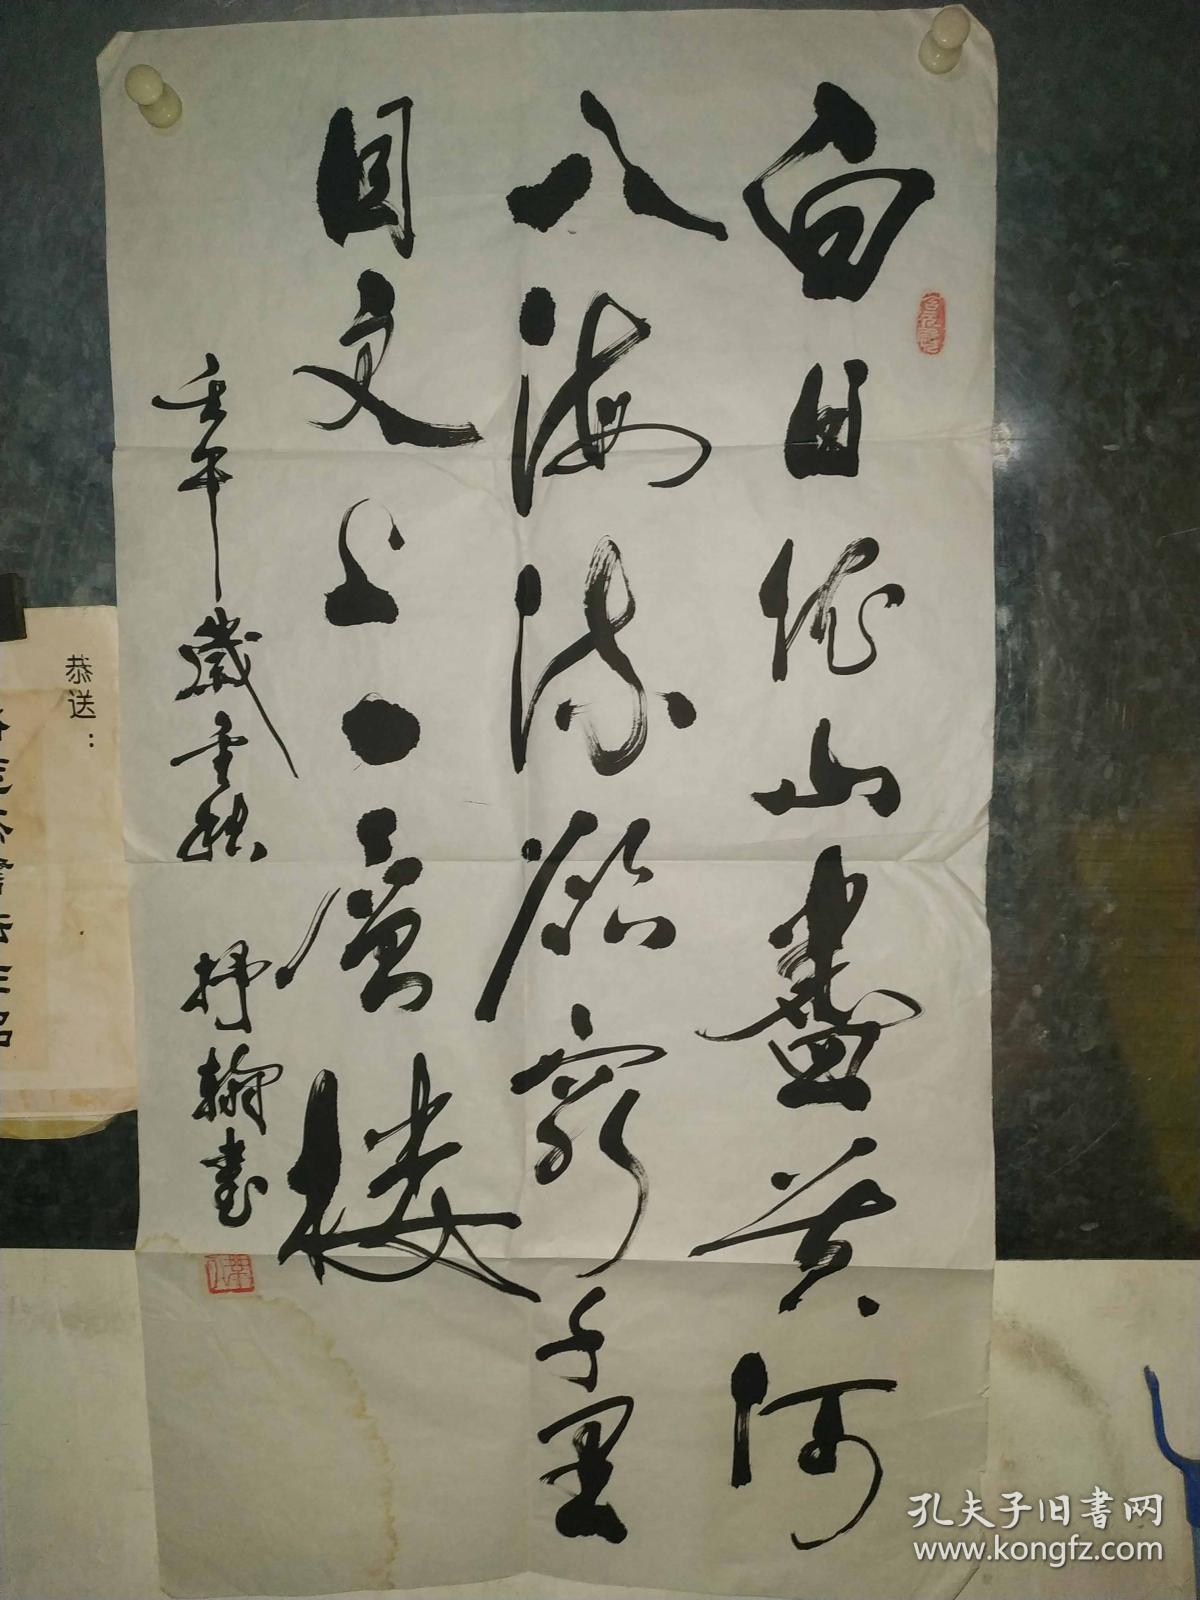 白日依山盡黄河
入海流欲窮千里
目更上一层楼
壬午歲重秋 抒翰書
恭送：
孔夫子旧书网
www.kongfz.com